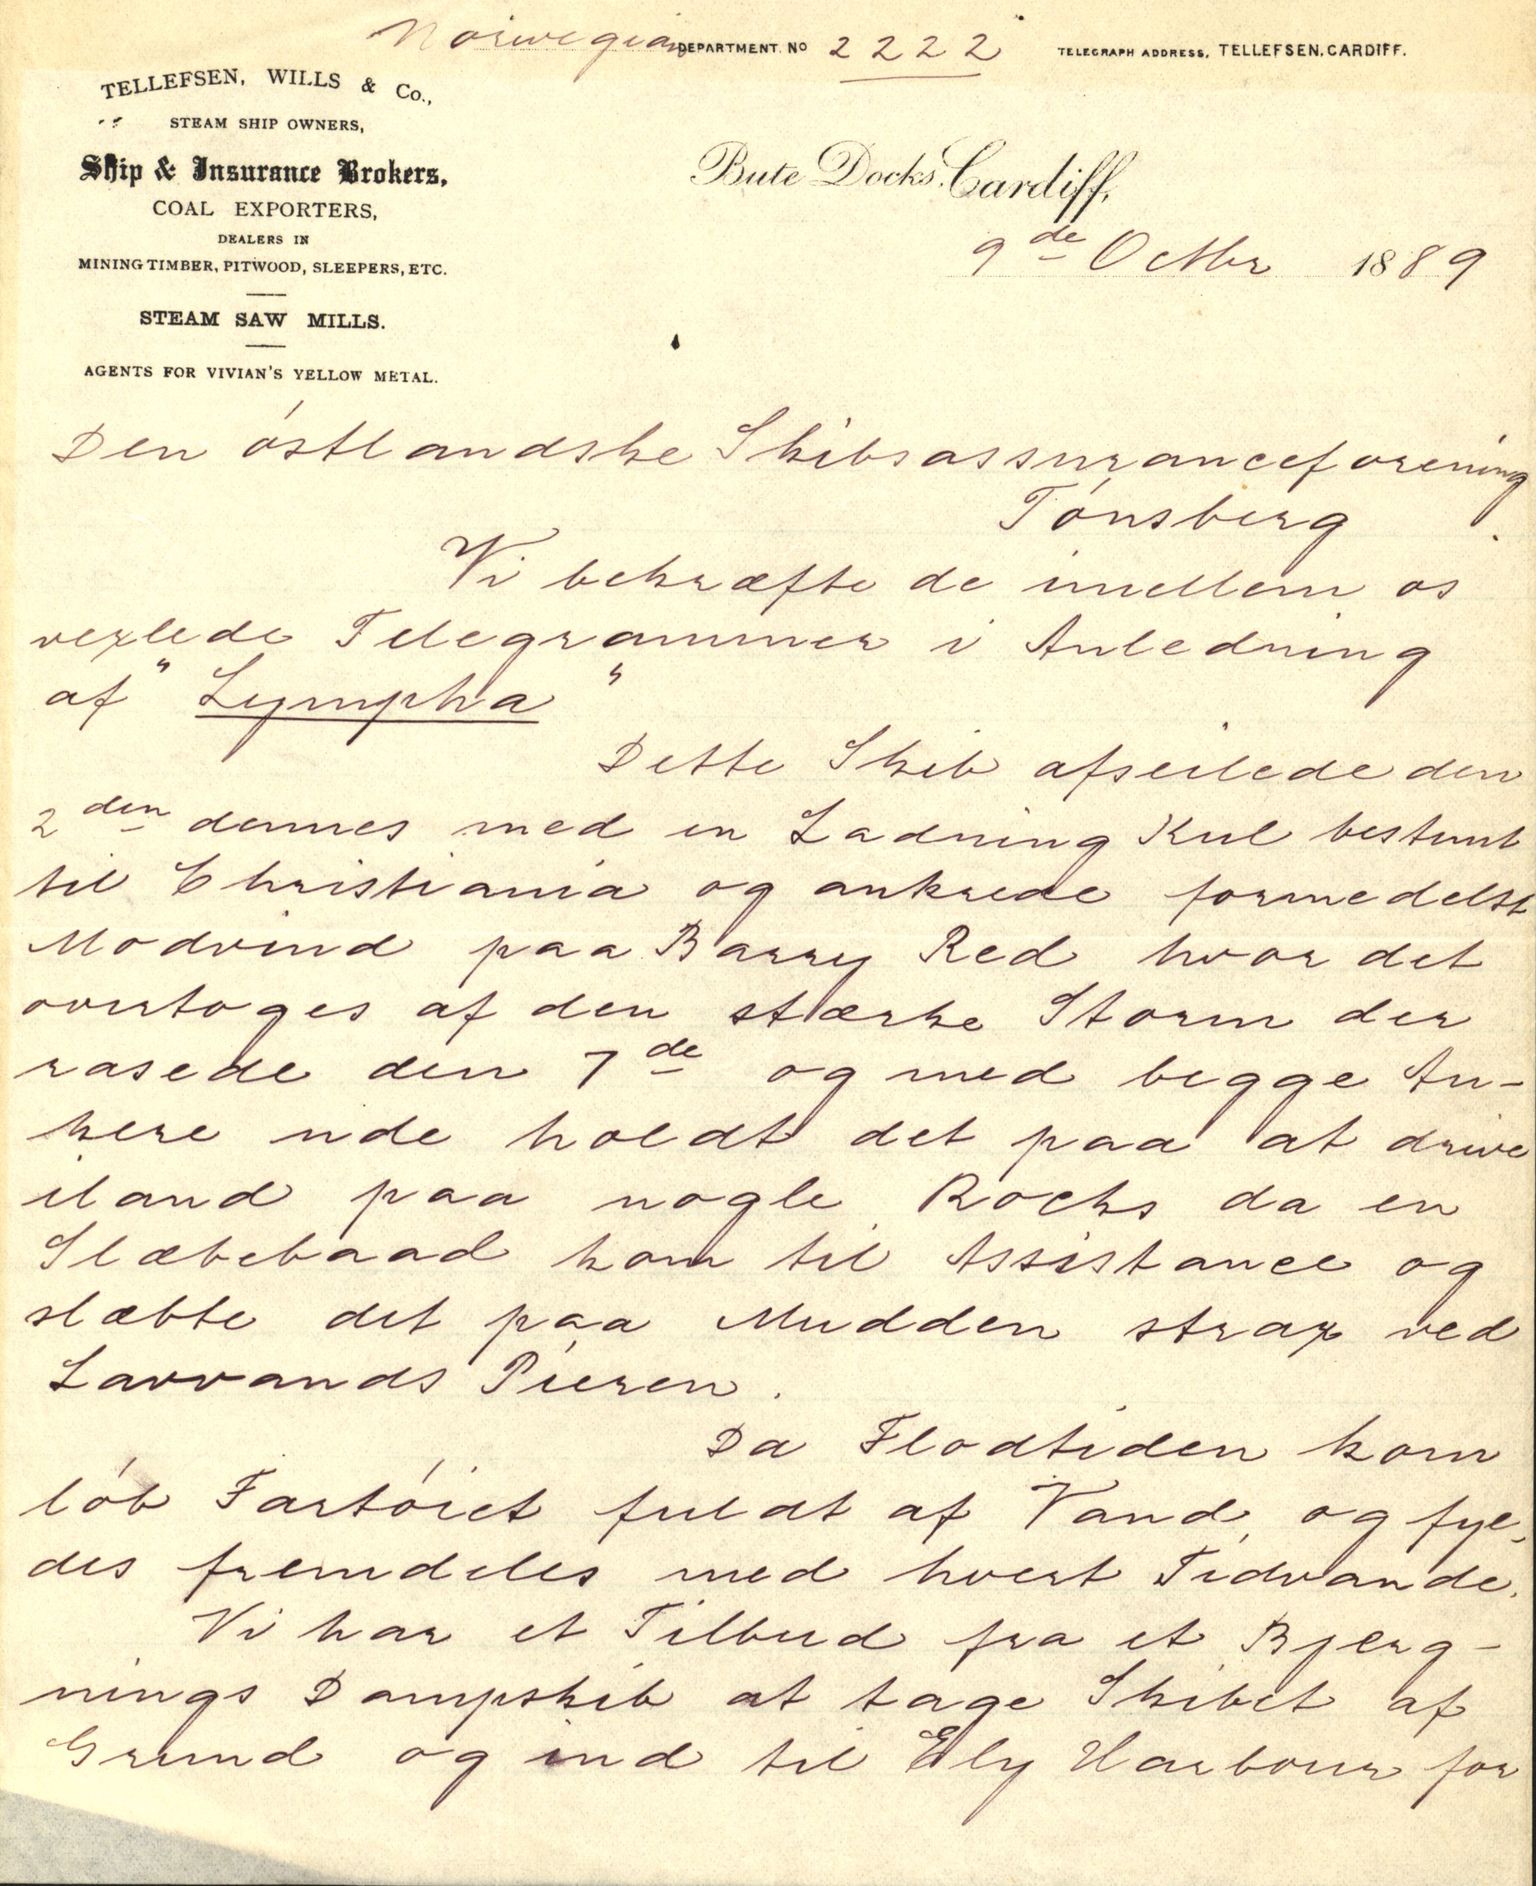 Norwegian DEPARTMENT. No 2222 TELEGRAPH ADDRESS, TELLEFSEN, CARDIFF.
TELLEFSEN, WILLS & Co.,
STEAM SHIP OWNERS,
Ship & Insurance Brokers,
COAL EXPORTERS,
DEALERS IN
MINING TIMBER, PITWOOD, SLEEPERS, ETC.
STEAM SAW MILLS.
AGENTS FOR VIVIAN'S YELLOW METAL.
Bute Docks, Cardiff,
9de Octbr 1889
Den östlandske Skibsassuranceforening
Tönsberg.
Vi bekræfte de imellem os
vexlede Telegrammer i Anledning
af "Lympha"
Dette Skib afseilede den
2den dennes med en Ladning Kul bestemt
til Christiania og ankrede formedelst
Modvind paa Barry Red hvor det
overtoges af den stærke Storm der
rasede den 7de og med begge An-
kere ude holdt det paa at drive
iland paa nogle Rocks da en
Slæbebaad kom til Assistance og
slæbte det paa Mudden strax ved
Lavvands Pieren.
Da Flodtiden kom
löb Fartöiet fuldt af Vand, og fyl-
des fremdeles med hvert Tidvande.
Vi har et Tilbud fra et Bjerg-
nings Dampskib at tage Skibet af
Grund og ind til Ely Harbour for